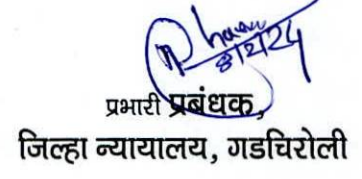 प्रभारी प्रबंधक,
जिल्हा न्यायालय, गडचिरोली